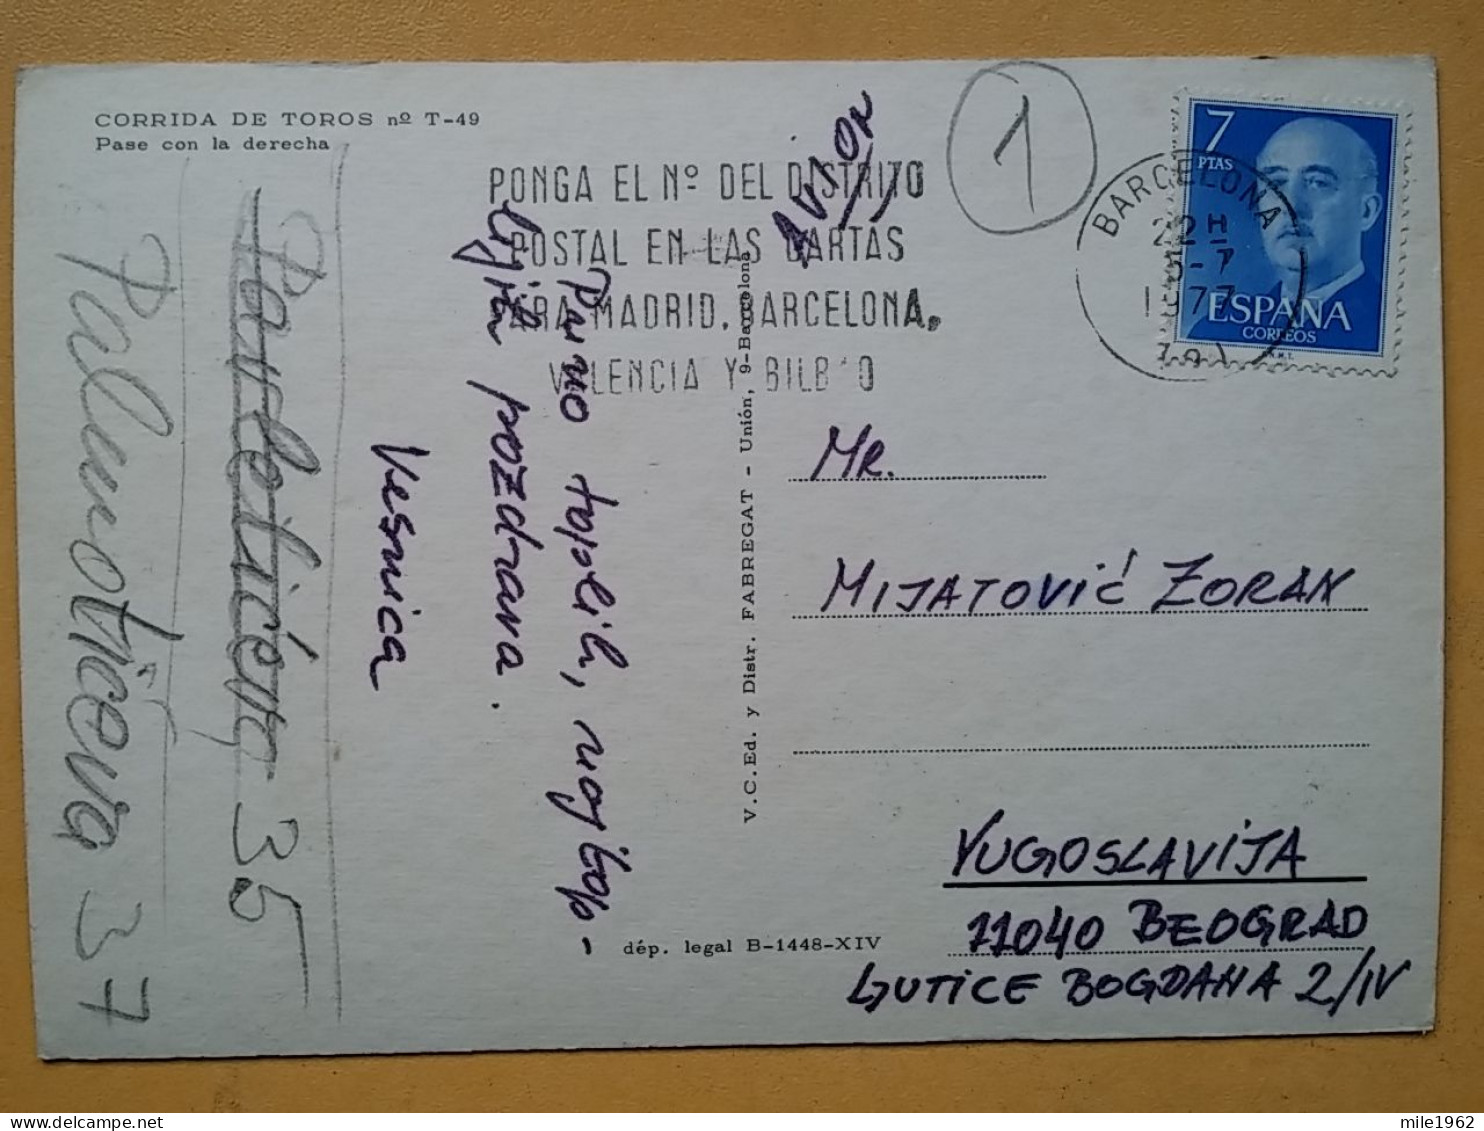 CORRIDA DE TOROS nº T-49
Pase con la derecha
PONGA EL Nº DEL DISTRITO
POSTAL EN LAS CARTAS
PARA MADRID, BARCELONA,
VALENCIA Y BILBAO
AVION
1
7
PTAS
ESPAÑA
CORREOS
BARCELONA
22H
5-7
1977
Puno toplih, najtop-
lijih pozdrava.
Vesnica
35
Palmotićeva 37
V.C.Ed. y Distr. FABREGAT - Unión, 9-Barcelona
MR.
MIJATOVIĆ ZORAN
YUGOSLAVIJA
11040 BEOGRAD
LJUTICE BOGDANA 2/IV
dép. legal B-1448-XIV
mile1962